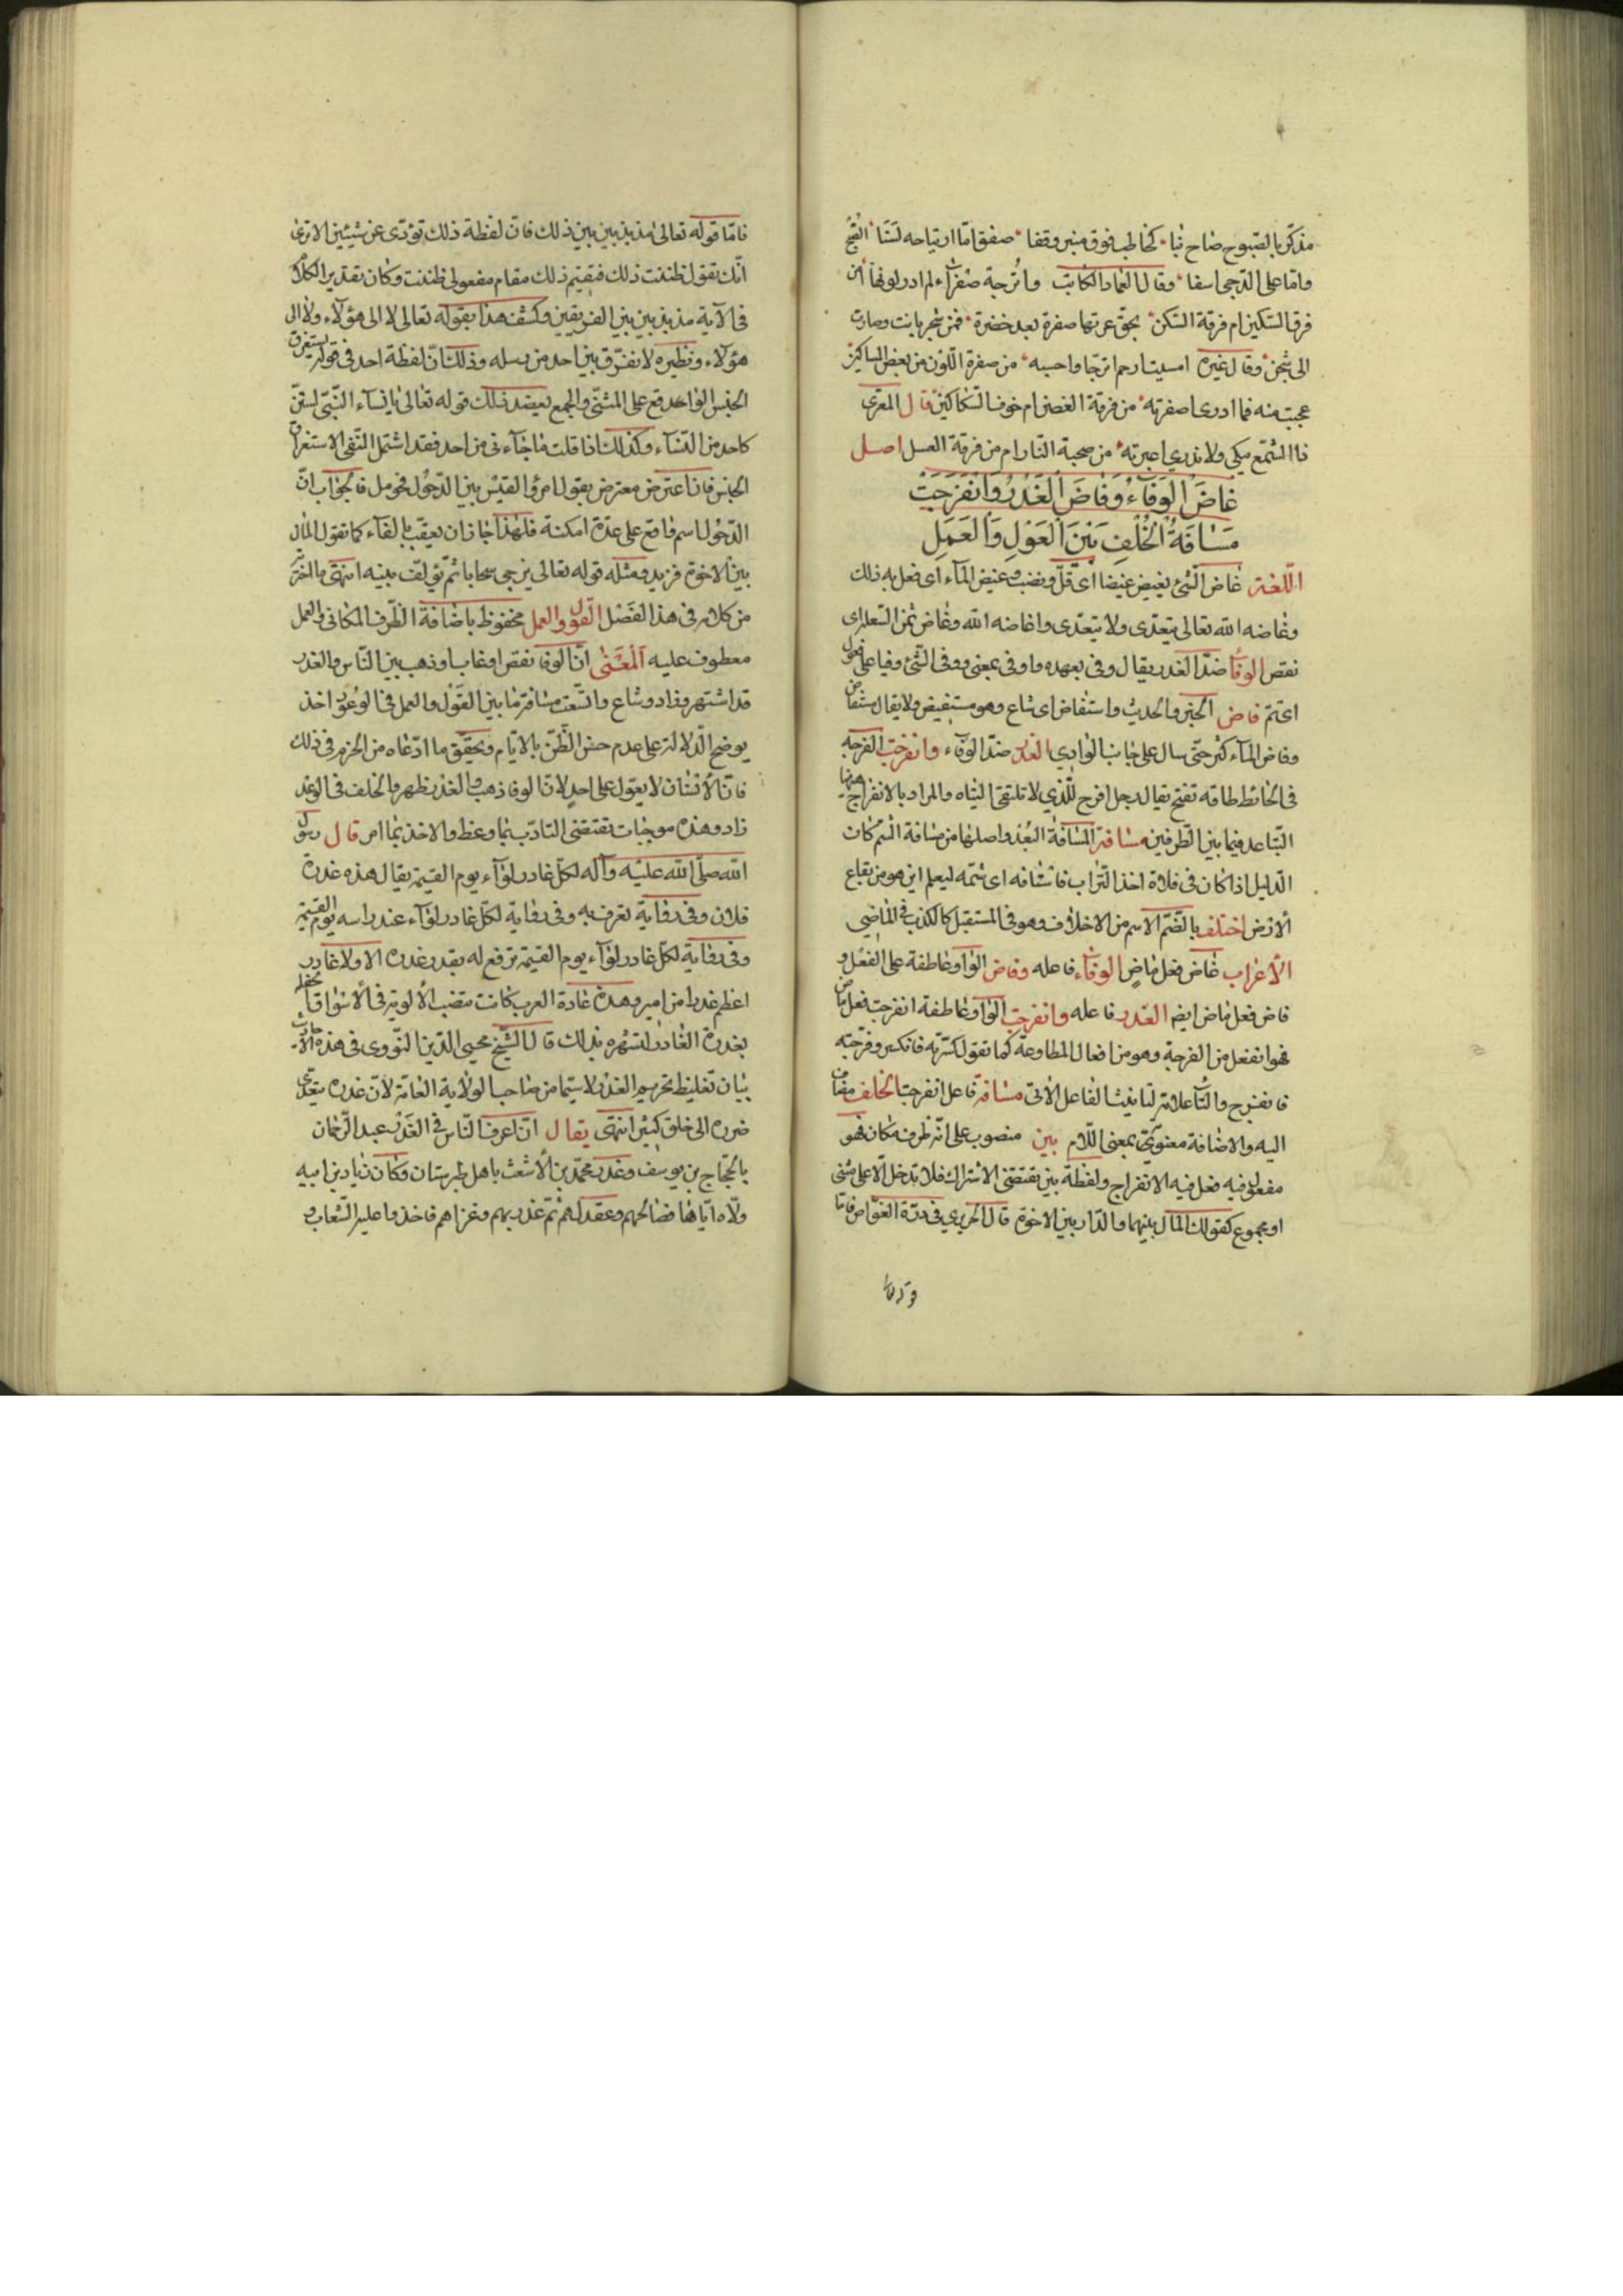 مذكّر بالصّبوح صاح بنا كخاطب فوق منبر وقفا صفق امّا ارتياحه لسنا الفجر
وامّا على الدّجى اسفا وقال العماد الكاتب واترجة صفراء لم ادر لونها أمن
فرق السّكين ام فرقة السّكن بحق عرتها صفرة بعد خضرة فمن شجر بانت وصارت
الى شجن وقال غيره امسيت ارحم اترجا واحسبه من صفرة اللّون من بعض المساكين
عجبت منه فما ادرى اصفرته من فرقة الغصن ام خوف السّكاكين قال المعرّى
فاالشّمع يبكى ولا ندرى اعبرته من صحبة النّار ام من فرقة العسل اصل
غَاضَ الْوَفَاءُ وَفَاضَ الْغَدْرُ وَانْفَرَجَتْ
مَسَافَةُ الْخُلْفِ بَيْنَ الْقَوْلِ وَالْعَمَلِ
اللّغة غاض الشّئ يغيض غيضا اى قلّ ونضب وغيض المآء اى فعل به ذلك
وغاضه الله تعالى يتعدّى ولا يتعدّى واغاضه الله وغاض ثمن السّلعة اى
نقص الوفآ ضدّ الغدر يقال وفى بعهده واوفى بمعنى ووفى الشّئ وفيا على فعول
اى تمّ فاض الخبر والحديث واستفاض اى شاع وهو مستفيض ولا يقال مستفاض
وفاض المآء كثر حتّى سال على جانب الوادي الغدر ضدّ الوفآء وانفرجت الفرجه
فى الحائط طاقه تفتح يقال رجل افرج للّذي لا تلتقى اليتاه والمراد بالانفراج هنها
التّباعد فيما بين الطّرفين مسافة المسافة البُعد واصلها من مسافة الشم كان
الدّليل اذا كان فى فلاة اخذ التّراب فاستافه اى شمّه ليعلم اين هو من بقاع
الارض اختلف بالضّم الاسم من الاخلاف وهو فى المستقبل كالكذب فى الماضي
الأعراب غاض فعل ماض الوفاء فاعله وفاض الواو عاطفة على الفعل و
فاض فعل ماض ايضا الغدر فاعله وانفرجت الواو عاطفة انفرجت فعل ماض
فهو انفعل من الفرجة وهو من افعال المطاوعة كما تقول كسّرته فانكسر وفرّجته
فانفرج والتّآ علامة لتانيث الفاعل الاتى مسافة فاعل انفرجت الخلف مضاف
اليه والاضافة معنويّة بمعنى اللام بين منصوب على انّه ظرف مكان فهو
مفعول فيه فعل فيه الانفراج ولفظة بين تقتضى الاشتراك فلا تدخل الّا على مثنى
او مجموع كقولك المال بينهما والدّار بين الاخوة قال الحريري فى درّة الغوّاص فامّا
قوله تعا
فامّا قوله تعالى مذبذبين بين ذلك فانّ لفظة ذلك تؤدّى عن شيئين الا ترى
انّك تقول ظننت ذلك فتقيم ذلك مقام مفعولى ظننت وكان تقدير الكلام
فى الآية مذبذبين بين الفريقين وكشف هذا بقوله تعالى لا الى هؤلآء ولا الى
هؤلآء ونظيره لا نفرّق بين احد من رسله وذلك انّ لفظة احد فى قوله تستغرق
الجنس الواحد تقع على المثنّى والجمع يعضد ذلك قوله تعالى يا نسآء النّبيّ لستنّ
كاحد من النّسآء وكذلك اذا قلت ما جآءنى من احد فقد اشتمل النّفى الاستغراق
الجنس فان اعترض معترض بقول امرؤ القيْس بين الدّخول فحومل فالجواب انّ
الدّخول اسم واقع على عدّة امكنة فلهذا جاز ان يعقّب بالفآء كما تقول المال
بين الاخوة فزيد ومثله قوله تعالى يزجى سحابا ثمّ يؤلّف بينه انتهى ما اخترته
من كلامه فى هذا الفصْل القول والعمل مخفوظ باضافة الظّرف المكانى والعمل
معطوف عليه اَلمَعْنى انّ الوفا نقص او غاب او ذهب بين النّاس والغدر
قد اشتهر وزاد وشاع واتّسعت مسافة ما بين القَوْل والعمل فى الوُعود اخذ
يوضح الدّلالة على عدم حسن الظّن بالايّام وتحقّق ما ادّعاه من الحزم فى ذلك
فانّ الأنسان لا يعوّل على احدٍ لانّ الوفا ذهب والغدْر ظهر والخلف فى الوعد
زاد وهذه موجبات تقتضى التادّب بما وعظ والاخذ بما امر قال رسول
الله صلّى الله عليْه وآله لكلّ غادر لوآء يوم القيمة يقال هذه غدرة
فلان وفى رواية تعرف به وفى رواية لكلّ غادر لوآء عند راسه يوم القيمة
وفى رواية لكلّ غادر لوآء يوم القيمة يرفع له بقدر غدره الا ولا غادر
اعظم غدرا من امير وهذه عادة العرب كانت تنصب الألوية فى الأسواق
بغدرة الغادر لتشهره بذلك قال الشّيخ محيى الدّين النّووى فى هذه الاحاديث
بيان تغليظ تحريم الغدْر لا سيّما من صاحب الولاية العامّة لانّ غدره يتعدّى
ضرره الى خلق كثير انتهى يقال انّ اعرف النّاس فى الغَدْر عبد الرّحمان
بالحّجاج بن يوسف وغدر محمّد بن الأشعث باهل طبرستان وكان زياد بن ابيه
ولّاه ايّاها فصالحهم وعقد لهم ثمّ غدر بهم وغزاهم فاخذوا عليه الشّعاب و